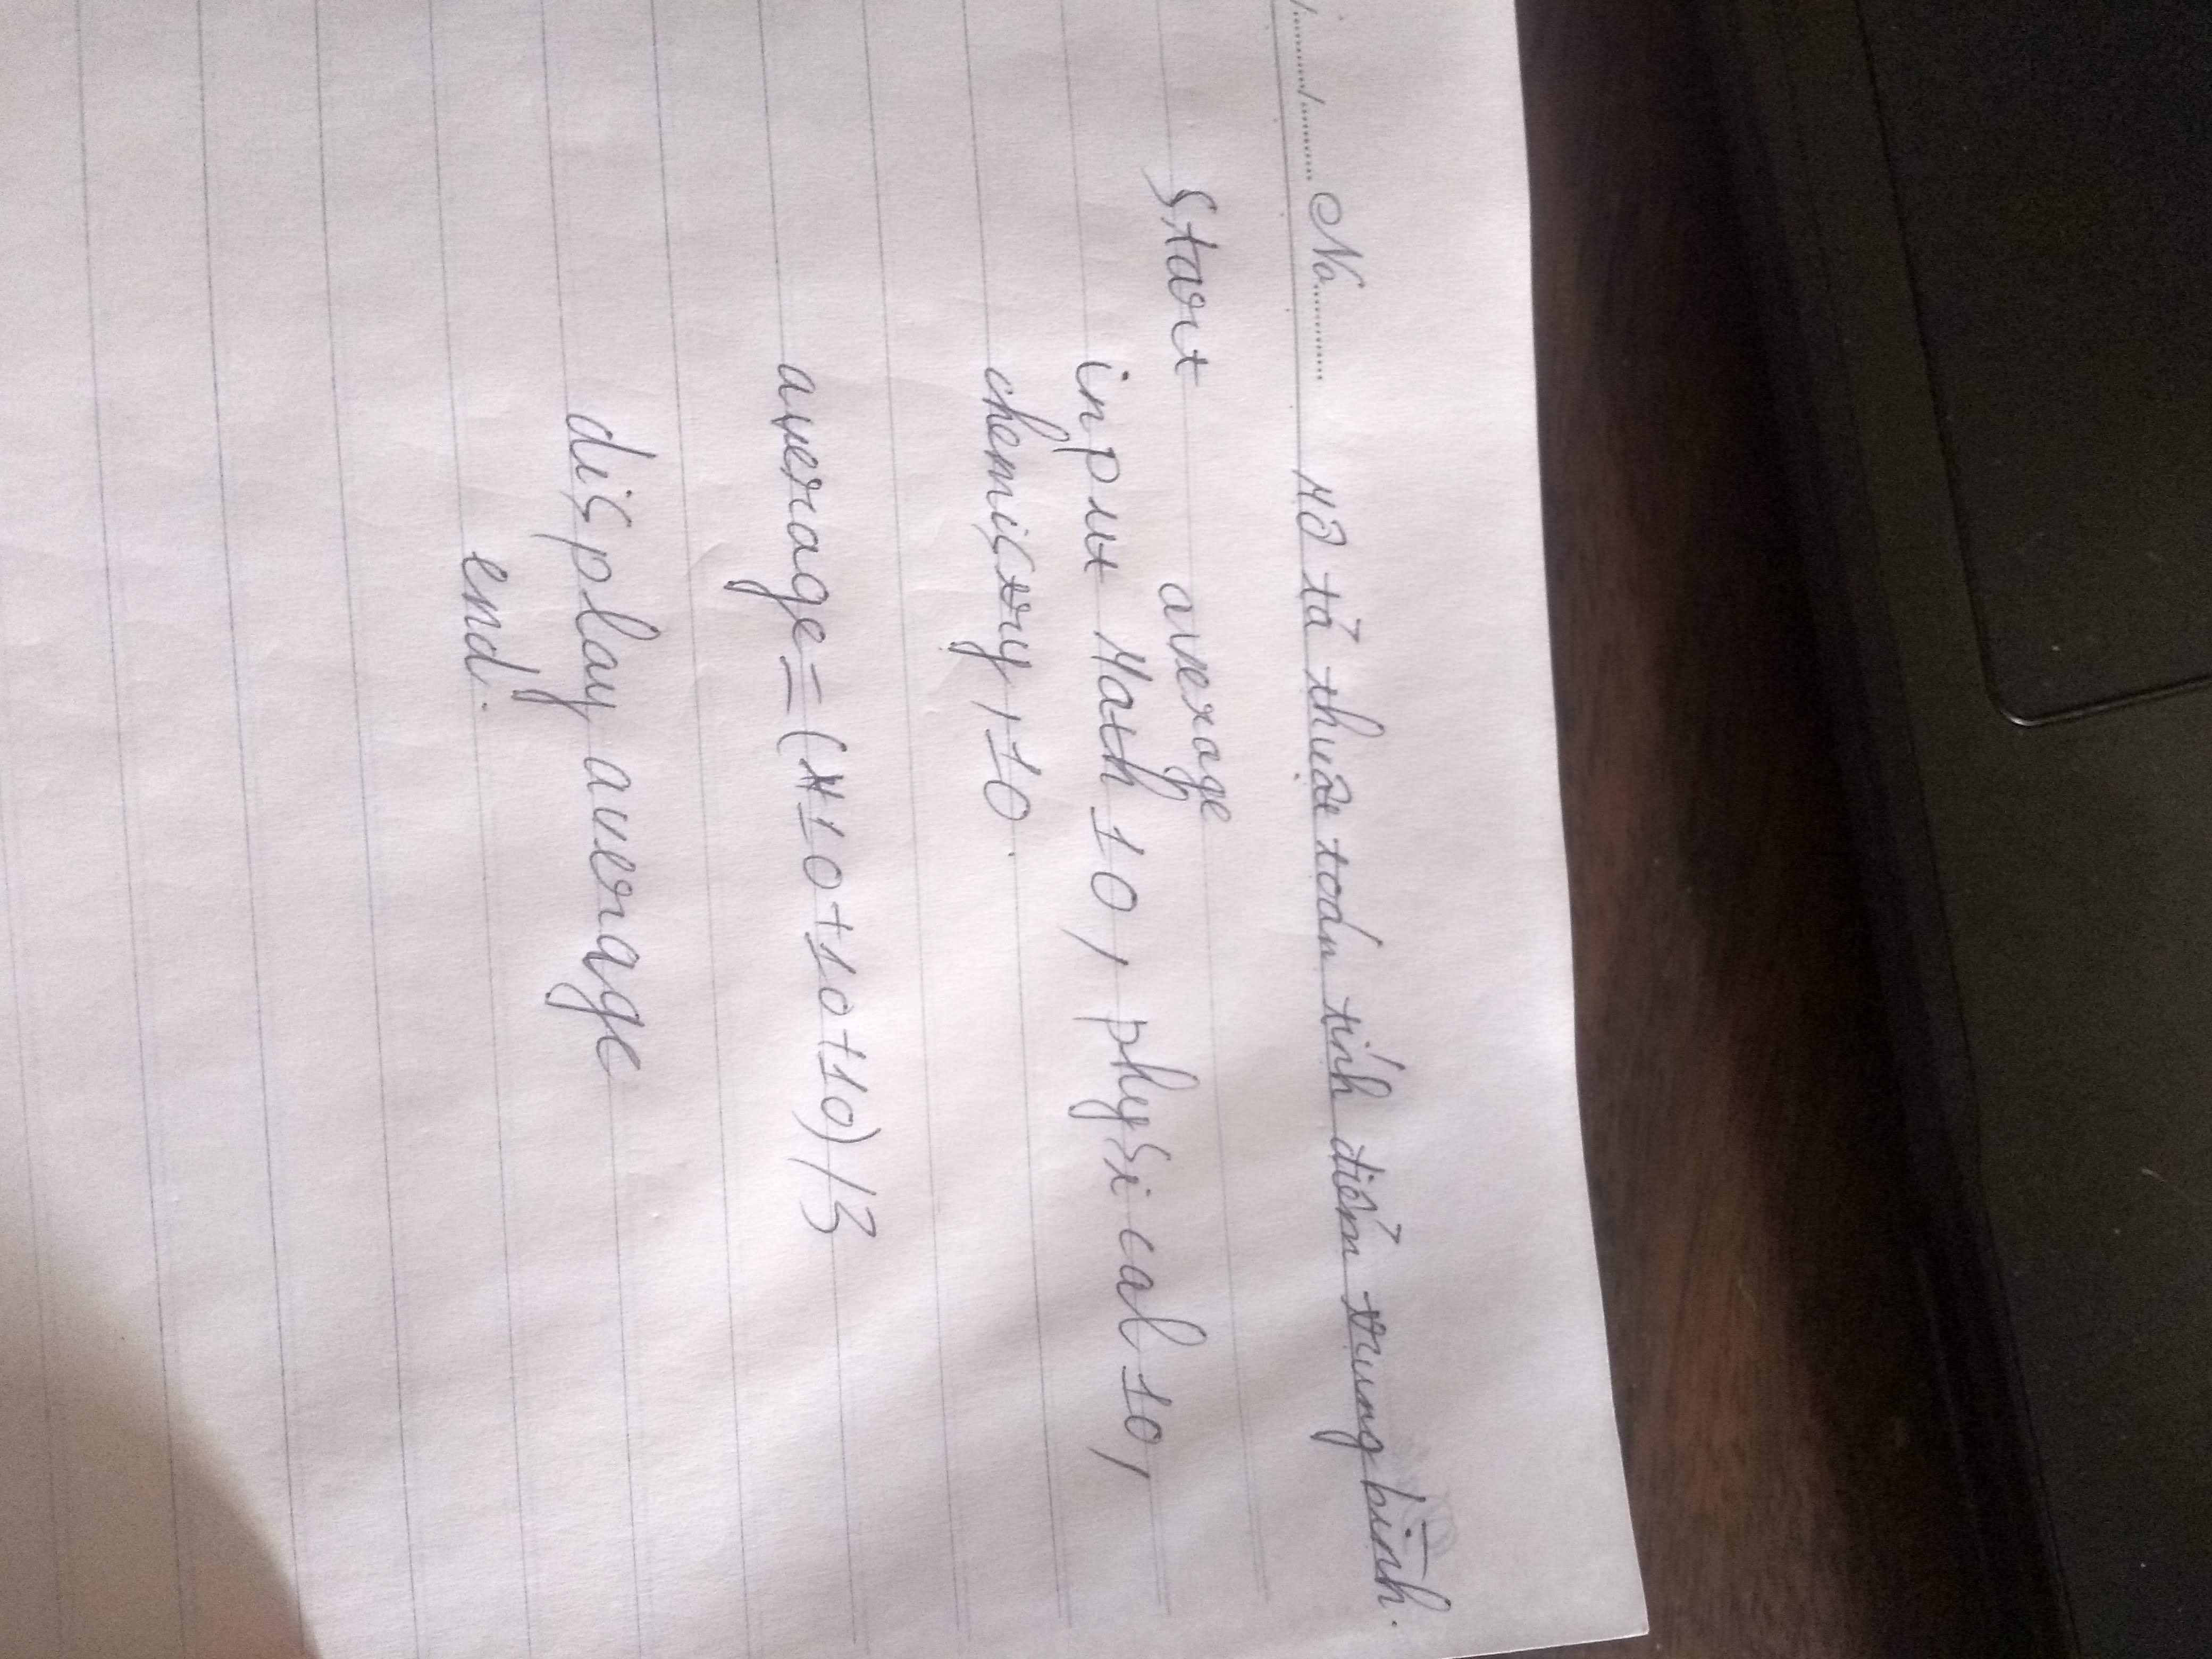 No.
Mô tả thuật toán tính điểm trung bình.
Start average
input Math 10, physical 10,
chemistry, 10.
average = (10+10+10)/3
display average
end.